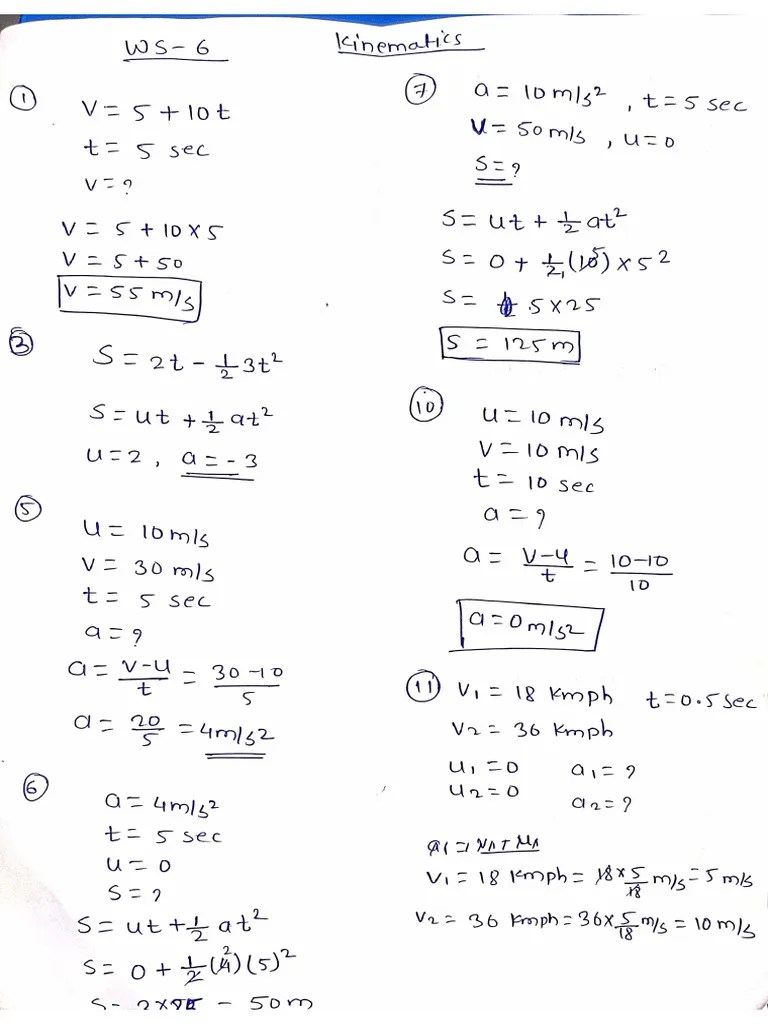 WS-6
Kinematics
①
V = 5 + 10t
t = 5 sec
V = ?
V = 5 + 10 × 5
V = 5 + 50
V = 55 m/s
③
S = 2t - 1/2 3t²
S = ut + 1/2 at²
u = 2 , a = - 3
⑤
u = 10 m/s
V = 30 m/s
t = 5 sec
a = ?
a = V-u/t = 30-10/5
a = 20/5 = 4m/s2
⑥
a = 4m/s²
t = 5 sec
u = 0
S = ?
S = ut + 1/2 at²
S = 0 + 1/2 (4)² (5)²
S = 2×25 - 50m
⑦ a = 10 m/s² , t = 5 sec
V = 50 m/s , u = 0
S = ?
S = ut + 1/2 at²
S = 0 + 1/2 (10) 5 × 5²
S = 5 × 25
S = 125 m
⑩
u = 10 m/s
V = 10 m/s
t = 10 sec
a = ?
a = V-u/t = 10-10/10
a = 0 m/s2
⑪ V1 = 18 Kmph t = 0.5 sec
V2 = 36 Kmph
u1 = 0 a1 = ?
u2 = 0 a2 = ?
V1 = 18 Kmph = 18 × 5/18 m/s = 5 m/s
V2 = 36 Kmph = 36 × 5/18 m/s = 10 m/s